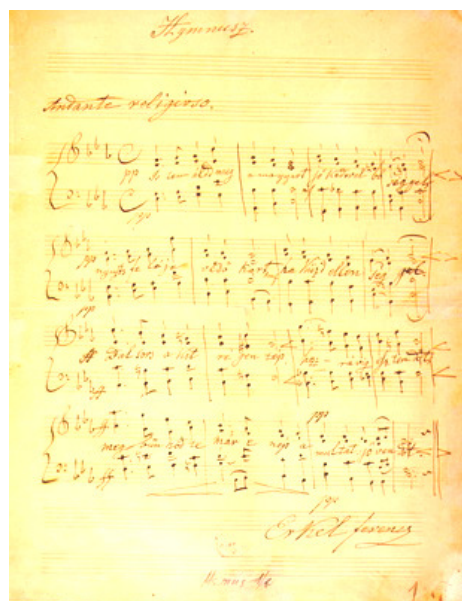 Hymnusz.
Andante religioso.
pp Is ten áld meg a magyart jó kedvel bő seggel
pp
pp nyujts fe léje védő kart ha küzd ellen seg gel
pp
ff Bal sors a kit re gen tép hoz reá
ff
pp
ff meg bűn hőd te már e nép a multat s jövendőt
ff
pp
Erkel ferencz
1